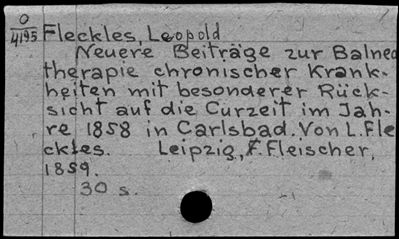 O
4195 Fleckles, Leopold
Neuere Beiträge zur Balneo
therapie chronischer Krank-
heiten mit besonderer Rück-
sicht auf die Curzeit im Jah-
re 1858 in Carlsbad. Von L. Fle
ckles. Leipzig, F. Fleischer,
1859.
30 s.